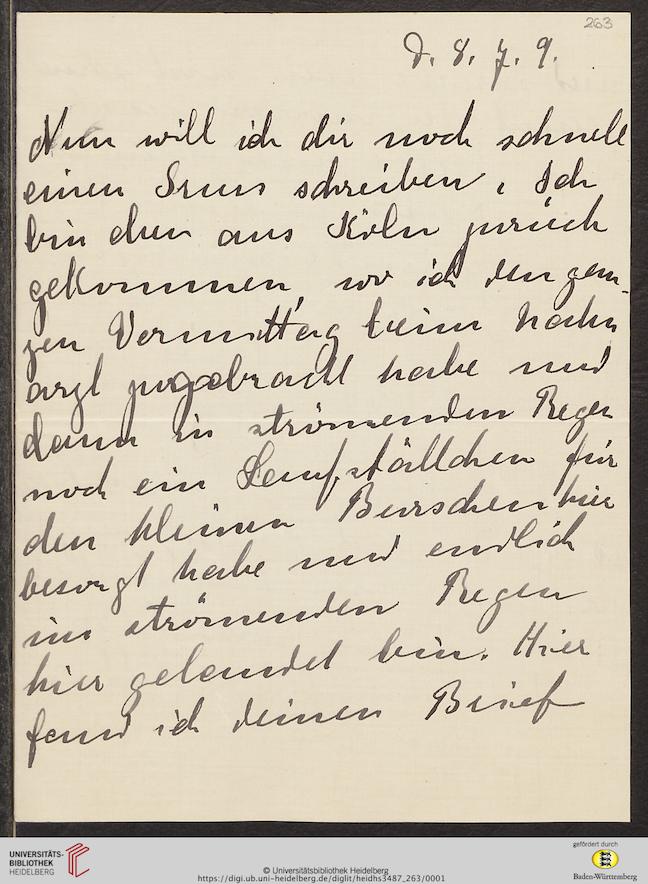 263
d. 8. 7. 9.
Nun will ich dir noch schnell
einen Gruss schreiben, Ich
bin eben aus Köln zurück
gekommen, wo ich den gan-
zen Vormittag beim Zahn
arzt zugebracht habe und
dann in strömenden Regen
noch ein Laufställchen für
den kleinen Burschen hier
besorgt habe und endlich
im strömenden Regen
hier gelandet bin. Hier
fand ich deinen Brief
UNIVERSITÄTS-
BIBLIOTHEK
HEIDELBERG
© Universitätsbibliothek Heidelberg
https://digi.ub.uni-heidelberg.de/diglit/heidhs3487_263/0001
gefördert durch
Baden-Württemberg